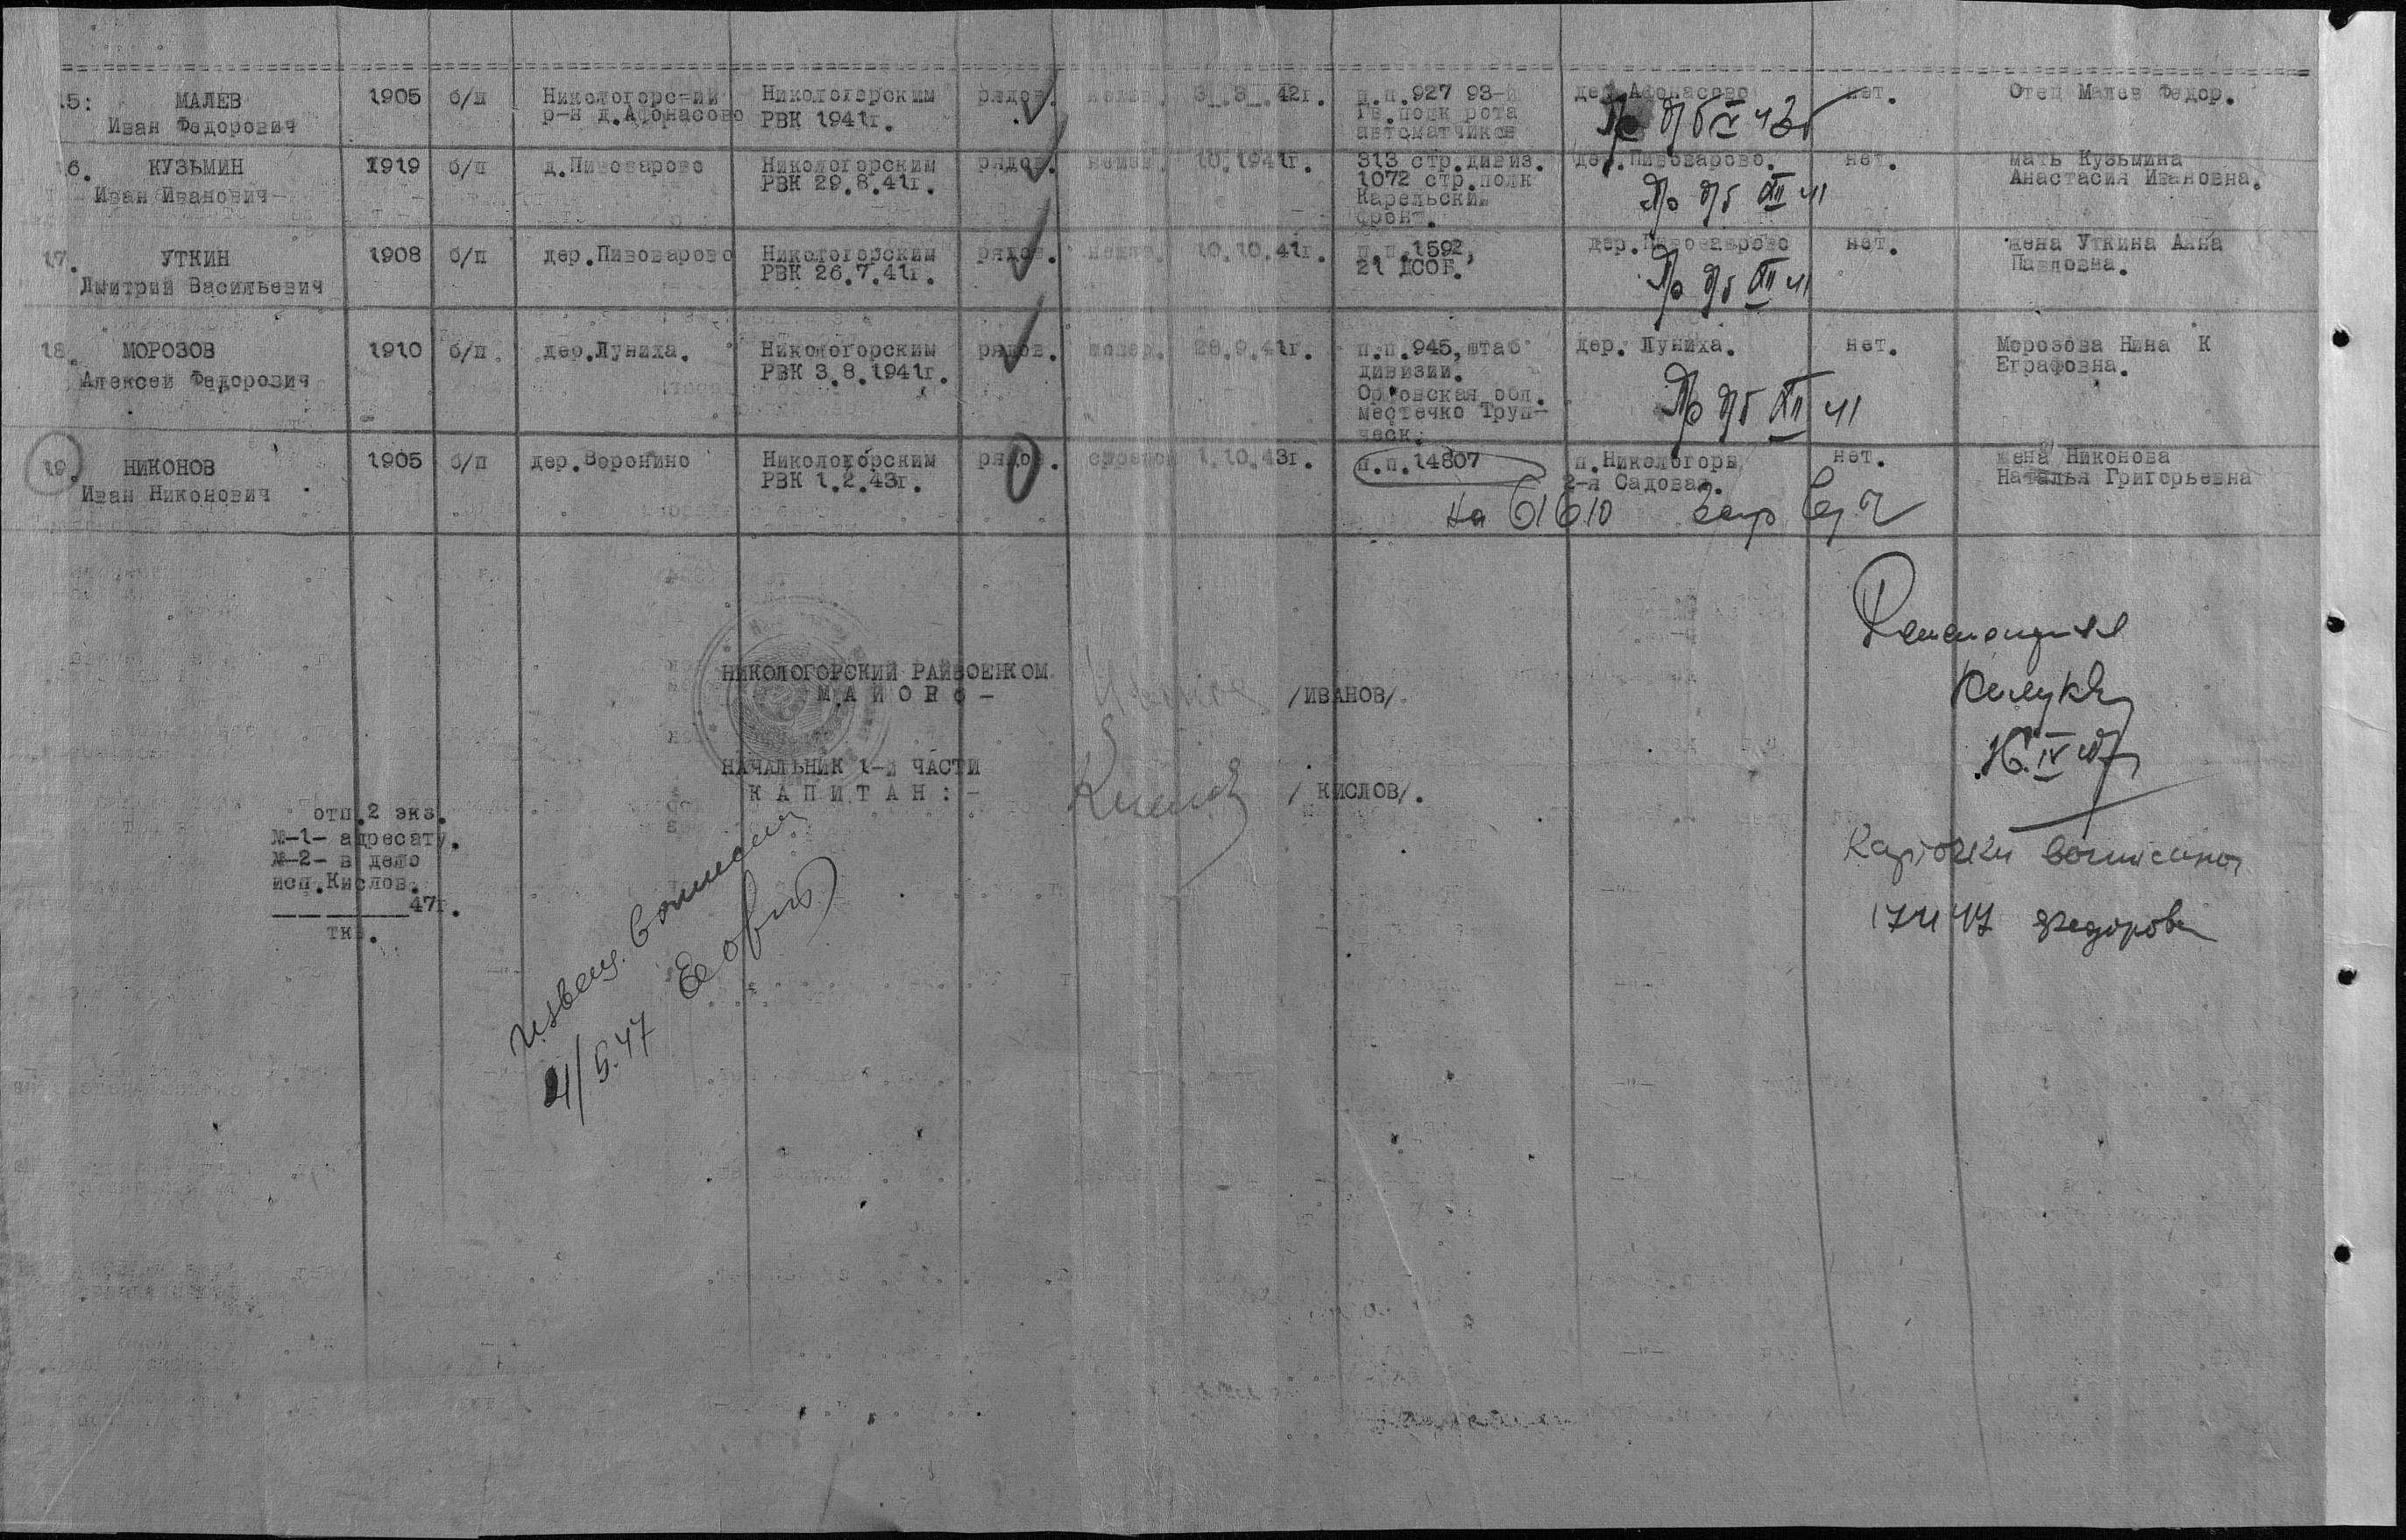 15: МАЛЕВ 1905 б/п Никологорский Никологорским рядов. 3_.3_.42г. п.п.927 93-й дер.Афонасово нет. Отец Малев Федор.
Иван Федорович р-н д.Афонасово РВК 1941г. гв.полк рота
автоматчиков
16. КУЗЬМИН 1919 б/п д.Пивоварово Никологорским рядов. 10.1941г. 313 стр.дивиз. дер.Пивоварово. нет. мать Кузьмина
Иван Иванович РВК 29.8.41г. 1072 стр.полк Анастасия Ивановна.
Карельский
фронт.
XII 41
17. УТКИН 1908 б/п дер.Пивоварово Никологорским рядов. 10.10.41г. п.п.1592, дер.Пивоварово нет. жена Уткина Анна
Дмитрий Васильевич РВК 26.7.41г. 21 ДСОБ. Павловна.
XII 41
18. МОРОЗОВ 1910 б/п. дер.Луниха. Никологорским рядов. 28.9.41г. п.п.945,штаб дер. Луниха. нет. Морозова Нина К
Алексей Федорович РВК 3.8.1941г. дивизии. Еграфовна.
Орловская обл.
местечко Труп-
ческ.
XII 41
19. НИКОНОВ 1905 б/п дер.Воронино Никологорским рядов. 1.10.43г. п.п.14807 п.Никологоры нет. жена Никонова
Иван Никонович РВК 1.2.43г. 2-я Садовая. Наталья Григорьевна
на 61610
НИКОЛОГОРСКИЙ РАЙВОЕНКОМ
М А Й О Р /ИВАНОВ/.
НАЧАЛЬНИК 1-й ЧАСТИ
К А П И Т А Н : - / КИСЛОВ/.
отп.2 экз.
№-1- адресату.
№-2- в дело
исп.Кислов.
47г.
16.IV 47
Карточки выписаны
17 4 47 Федорова
Извещ.
21/5.47